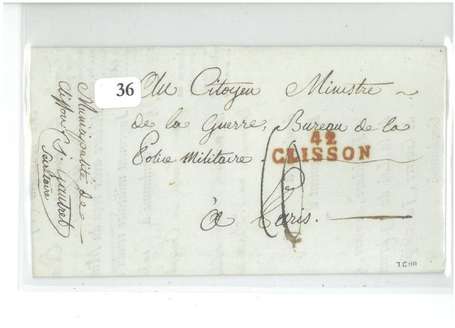 36
Au Citoyen Ministre
de la Guerre, Bureau de la
Police Militaire.
42
CLISSON
à Paris.
Municipalité de